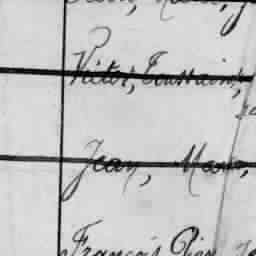 Victor, Toussaint,
Jean, Marie,
François Pier